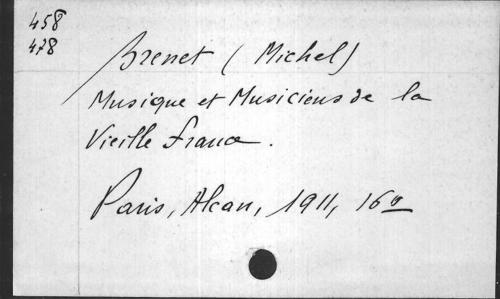 458
478
Brenet (Michel)
Musique et Musiciens de la
Vieille France.
Paris, Alcan, 1911, 16º